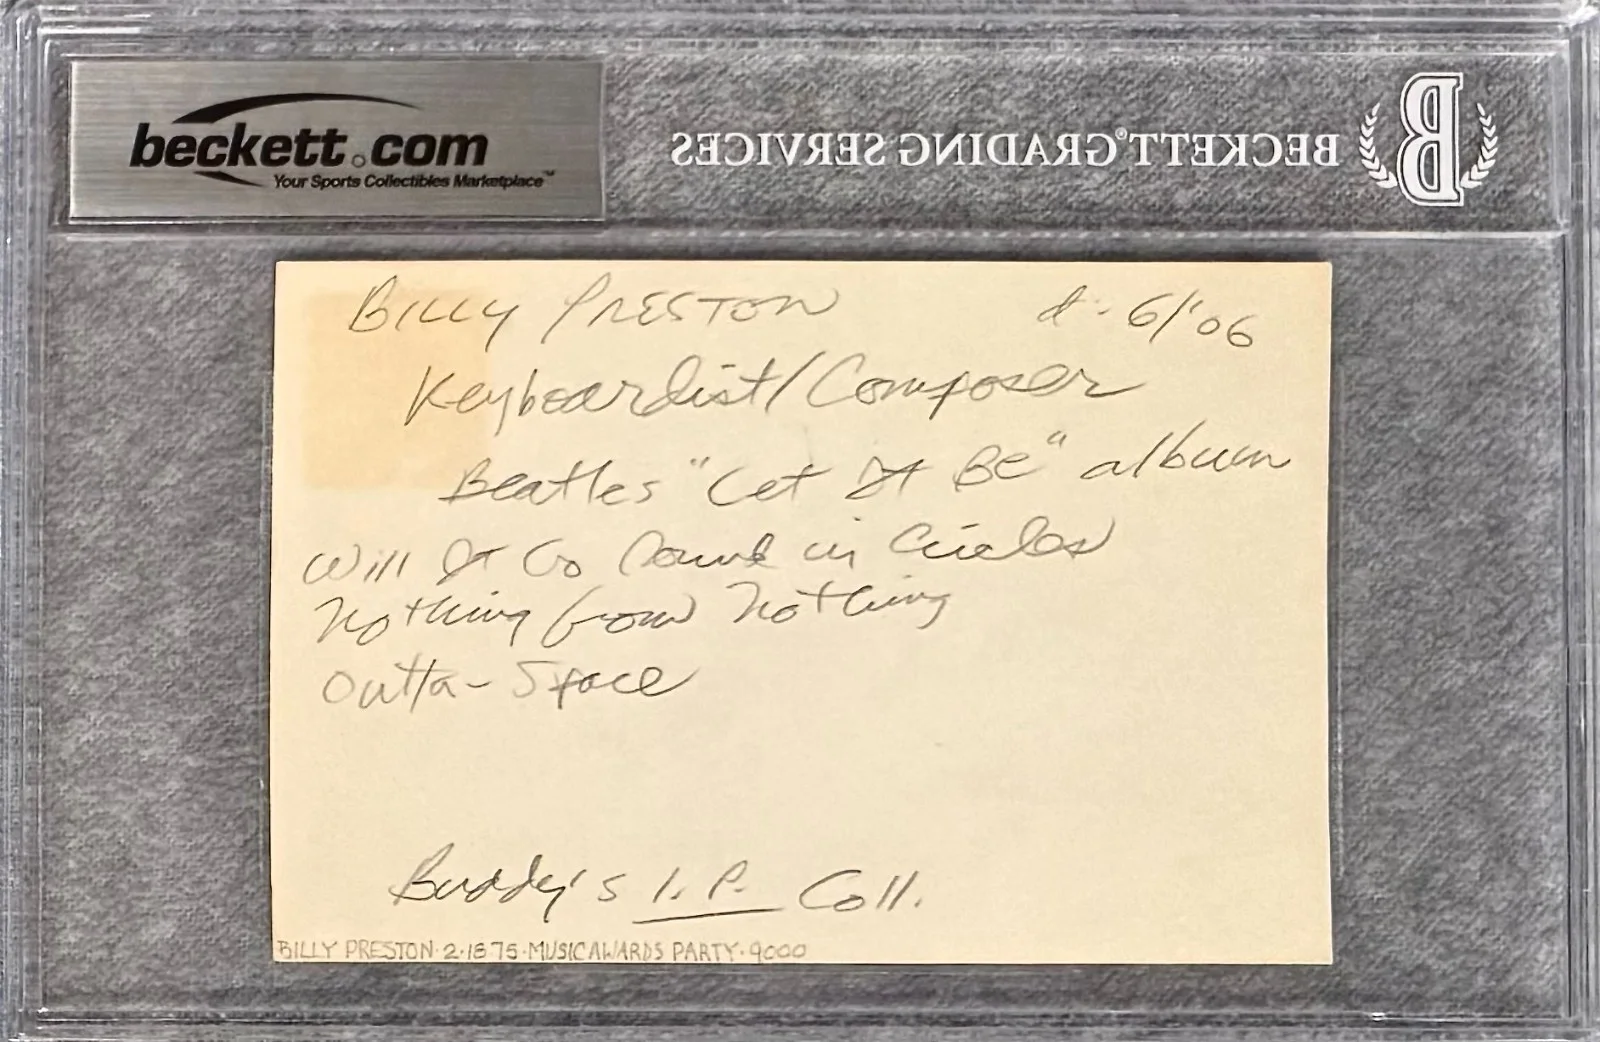 beckett.com
Your Sports Collectibles Marketplace™
BECKETT® GRADING SERVICES
B
BILLY PRESTON d. 6/'06
Keyboardist/Composer
Beatles "Let It Be" album
Will It Go Round in Circles
Nothing from Nothing
Outta-Space
Buddy's I.P. Coll.
BILLY PRESTON·2·18·75·MUSIC AWARDS PARTY·9000